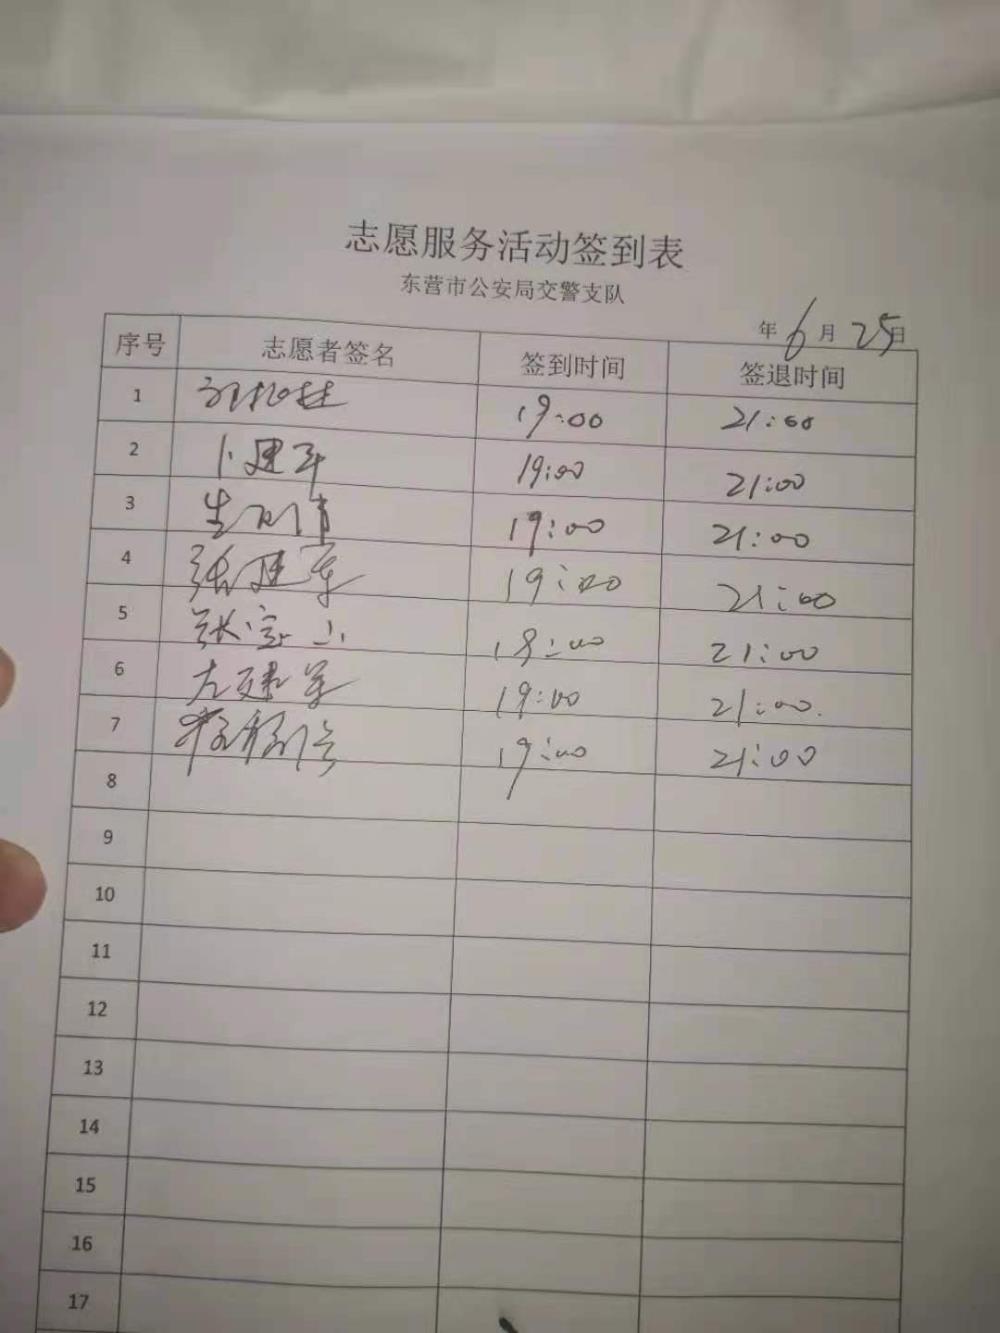 志愿服务活动签到表
东营市公安局交警支队
年 6 月 25 日
序号 志愿者签名 签到时间 签退时间
1 19:00 21:00
2 卜建军 19:00 21:00
3 19:00 21:00
4 张建军 19:00 21:00
5 张宝山 19:00 21:00
6 左建军 19:00 21:00.
7 19:00 21:00
8
9
10
11
12
13
14
15
16
17